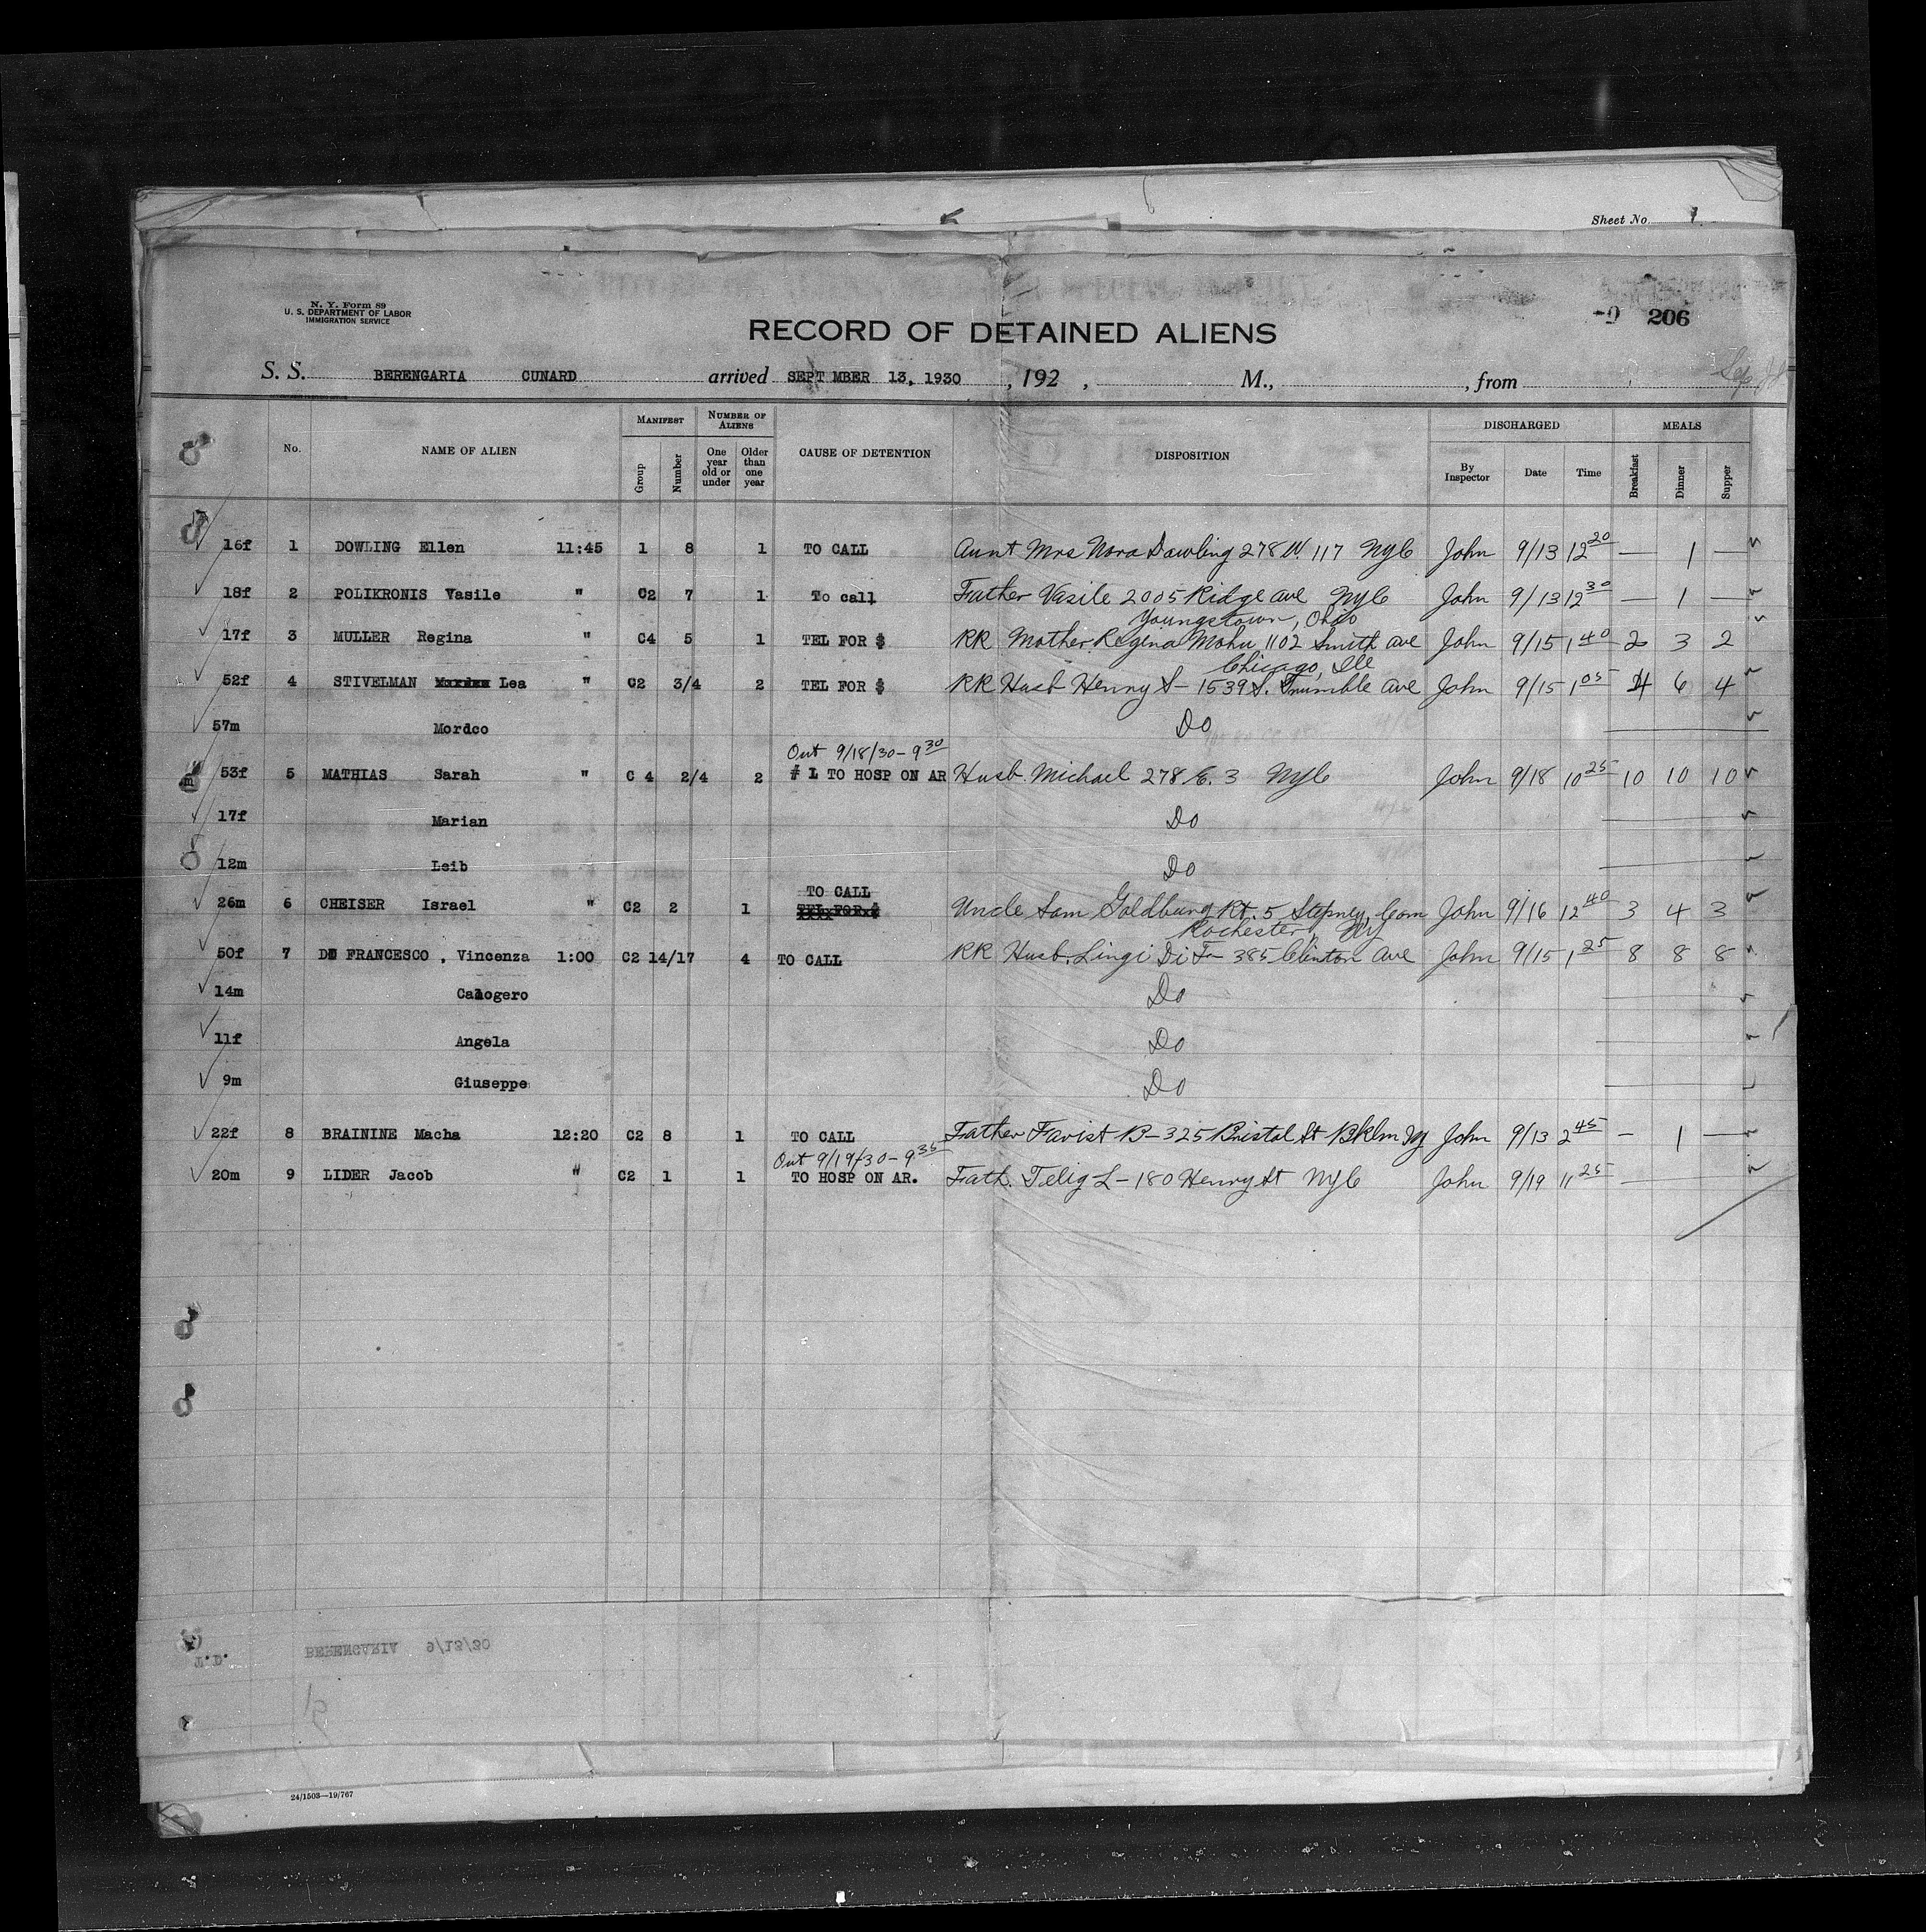 Sheet No. 1
N. Y. Form 89
U. S. DEPARTMENT OF LABOR
IMMIGRATION SERVICE
206
RECORD OF DETAINED ALIENS
S. S. BERENGARIA CUNARD arrived SEPT MBER 13, 1930 , 192 , M., , from
No. NAME OF ALIEN MANIFEST Group Number NUMBER OF ALIENS One year old or under Older than one year CAUSE OF DETENTION DISPOSITION DISCHARGED By Inspector Date Time MEALS Breakfast Dinner Supper
16f 1 DOWLING Ellen 11:45 1 8 1 TO CALL Aunt Mrs Nora Dowling 278 W. 117 NYC John 9/13 12 20 — 1 —
18f 2 POLIKRONIS Vasile " C2 7 1 To call Father Vasile 2005 Ridge ave NYC John 9/13 12 30 — 1 —
Youngstown, Ohio
17f 3 MULLER Regina " C4 5 1 TEL FOR $ RR Mother Regena Mohu 1102 Smith ave John 9/15 1 40 2 3 2
Chicago, Ill
52f 4 STIVELMAN Lea " C2 3/4 2 TEL FOR $ RR Husb Henry S - 1539 S. Trumble ave John 9/15 1 05 4 6 4
57m Mordco Do
Out 9/18/30 - 9 30
53f 5 MATHIAS Sarah " C 4 2/4 2 # 1 TO HOSP ON AR Husb. Michael 278 E. 3 NYC John 9/18 10 25 10 10 10
17f Marian Do
12m Leib Do
TO CALL
26m 6 CHEISER Israel " C2 2 1 TEL FOR $ Uncle Sam Goldburg Rt. 5 Stepney, Conn John 9/16 12 40 3 4 3
Rochester, NY
50f 7 DE FRANCESCO , Vincenza 1:00 C2 14/17 4 TO CALL RR Husb. Lingi Di F- 385 Clinton Ave John 9/15 1 25 8 8 8
14m Calogero Do
11f Angela Do
9m Giuseppe Do
22f 8 BRAININE Macha 12:20 C2 8 1 TO CALL Father Favist B - 325 Bristol St Bklm Ny John 9/13 2 45 — 1 —
Out 9/19/30 - 9 35
20m 9 LIDER Jacob " C2 1 1 TO HOSP ON AR. Fath. Telig L - 180 Henry St NYC John 9/19 11 25
BERENGARIA 9/13/30
24/1503—19/767